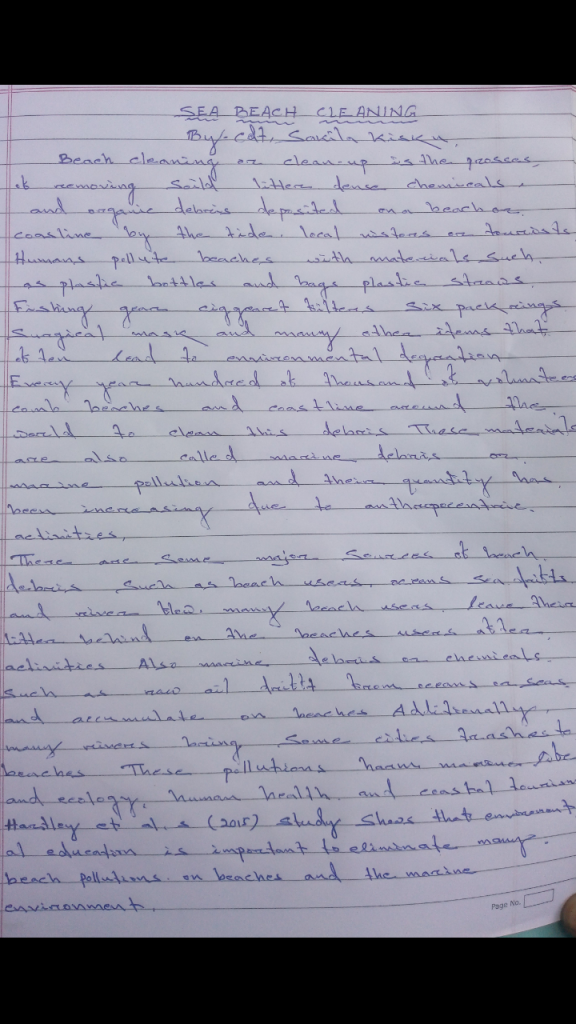 SEA BEACH CLEANING
By:- cdt. Sakila Kisku.
Beach cleaning or clean-up is the prosces
of removing soild litter dense chemicals,
and organic debris deposited on a beach or
coasline by the tide. local vistors or tourists
Humans pollute beaches with materials such.
as plastic bottles and bags plastic straws.
Fishing gear ciggaret filters six pack rings
Surgical mask and many other items that
often lead to environmental degration
Every year hundred of thousand of volunatees
comb beaches and coastline around the
world to clean this debris These materials
are also called marine debris or
marine pollution and their quantity has
been increasing due to anthropocentric.
activities,
There are some major sources of beach.
debris such as beach users, oceans sea drifts
and river flow. many beach users, leave their
litter behind on the beaches users after
activities Also marine debris or chemicals.
such as raw oil drift from oceans or seas
and accumulate on beaches Additionally,
many rivers bring some cities trashes to
beaches These pollutions harm marine life
and ecology, human health and coastal tourism
Hartley et al.s (2015) study shows that environment
al education is important to eliminate many.
beach pollutions. on beaches and the marine
environment.
Page No.